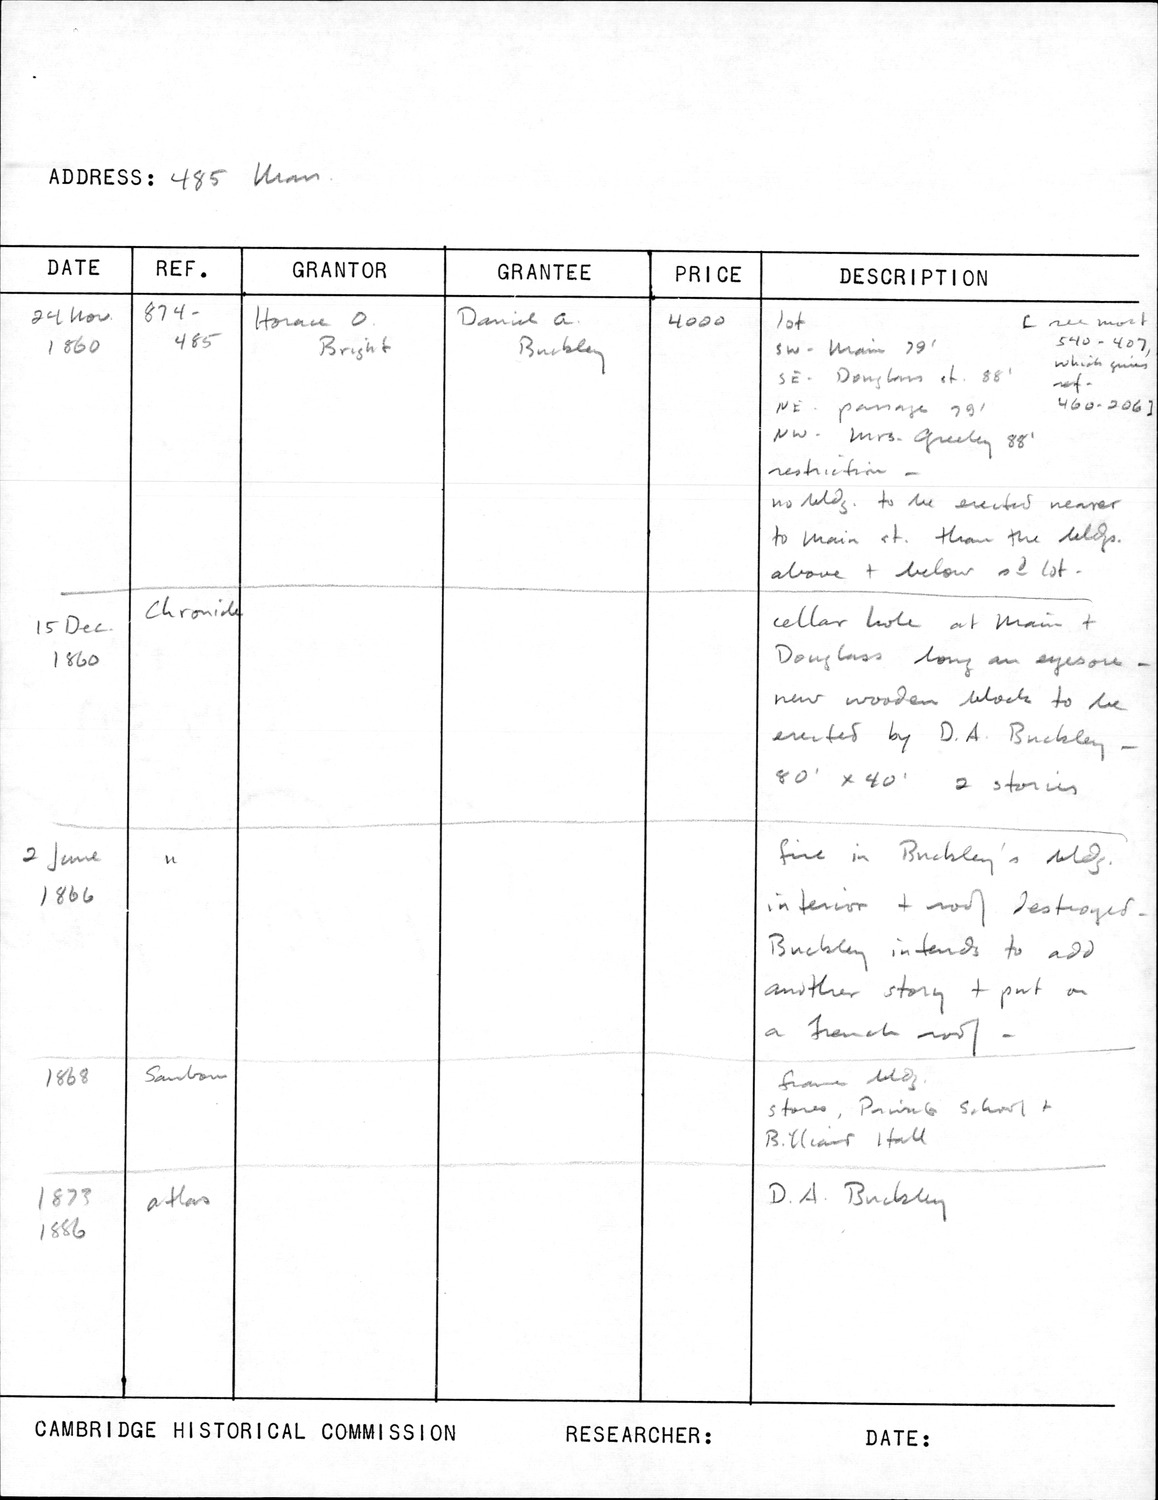 ADDRESS: 485 Mass.
DATE REF. GRANTOR GRANTEE PRICE DESCRIPTION
24 Nov. 1860
874-485
Horace O. Bright
Daniel A. Buckley
4000
lot
SW- Main 79'
SE- Douglass st. 88'
NE- passage 79'
NW- Mrs. Greeley 88'
[see mort
540-407,
which gives
ref-
460-206]
restriction -
no bldg. to be erected nearer
to Main st. than the bldgs.
above + below sd lot.
15 Dec.
1860
Chronicle
cellar hole at Main +
Douglass long an eyesore -
new wooden block to be
erected by D.A. Buckley -
80' x 40' 2 stories
2 June
1866
"
fire in Buckley's bldg.
interior + roof destroyed -
Buckley intends to add
another story + put on
a french roof -
1868
Sanborn
frame bldg.
stores, Private School +
Billiard Hall
1873
1886
atlas
D.A. Buckley
CAMBRIDGE HISTORICAL COMMISSION RESEARCHER: DATE: